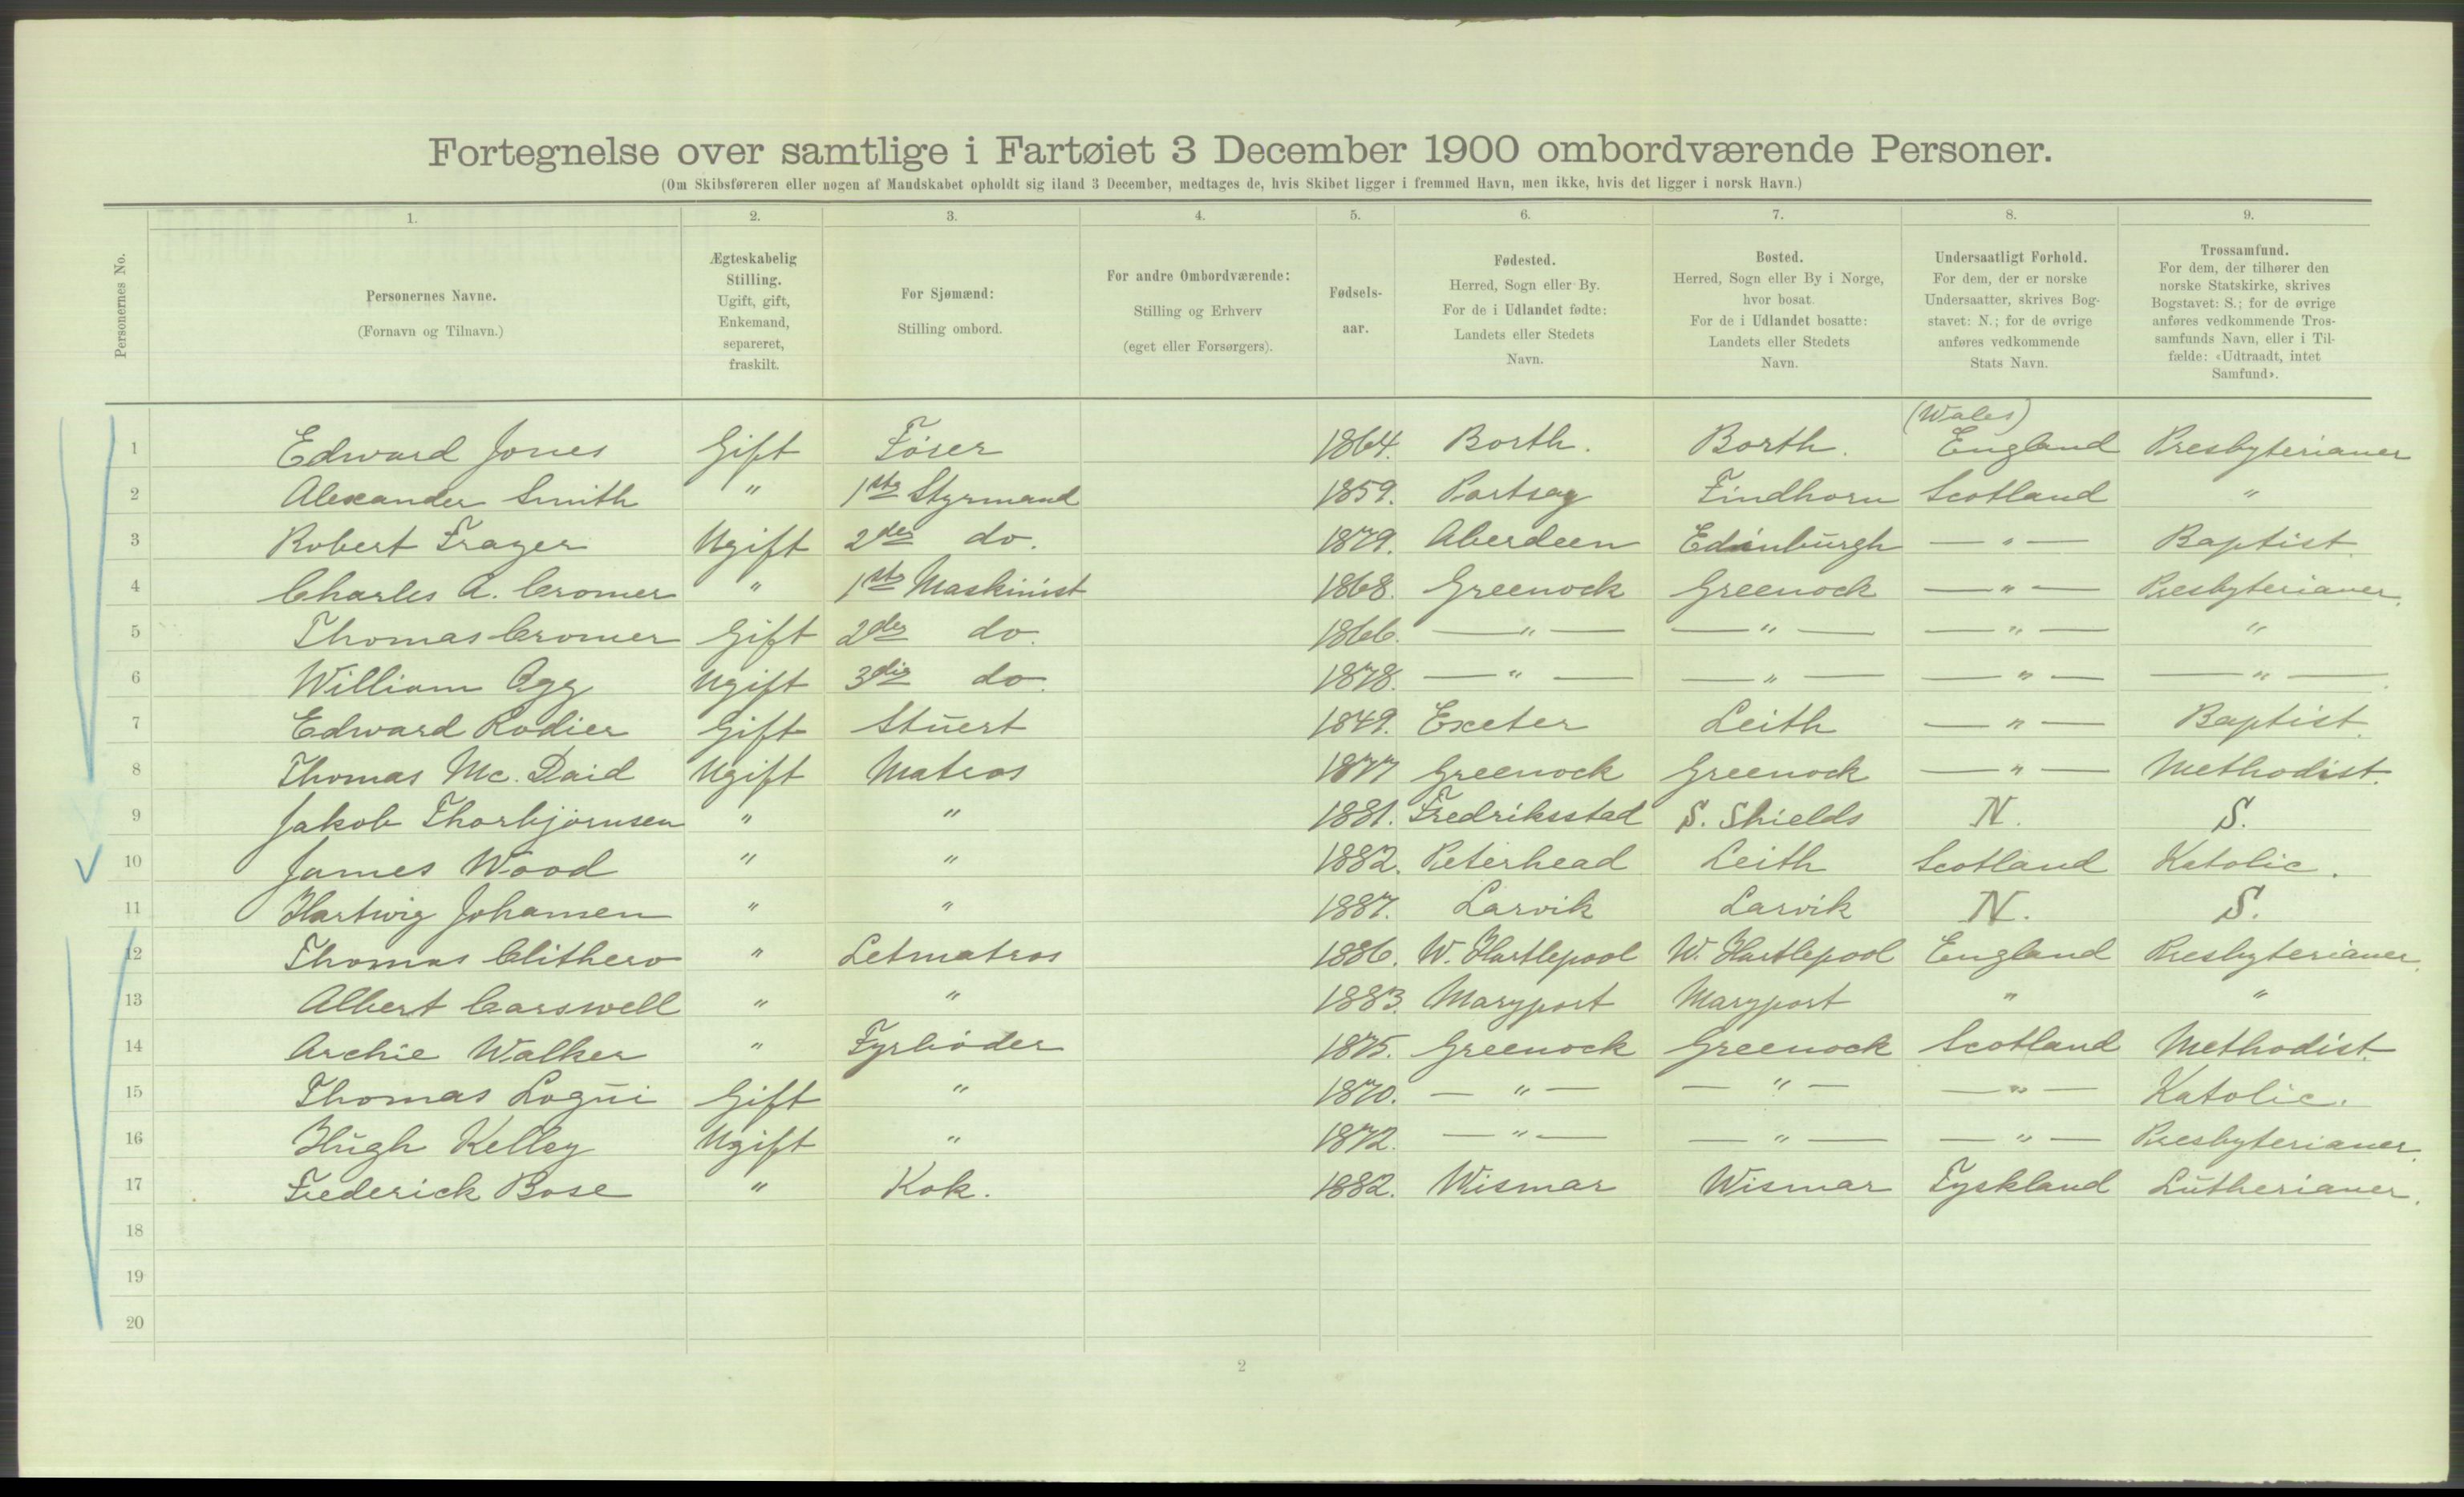 Fortegnelse over samtlige i Fartøiet 3 December 1900 ombordværende Personer.
(Om Skibsføreren eller nogen af Mandskabet opholdt sig iland 3 December, medtages de, hvis Skibet ligger i fremmed Havn, men ikke, hvis det ligger i norsk Havn.)
Personernes No.
1. 2. 3. 4. 5. 6. 7. 8. 9.
Personernes Navne.
(Fornavn og Tilnavn.)
Ægteskabelig
Stilling.
Ugift, gift,
Enkemand,
separeret,
fraskilt.
For Sjømænd:
Stilling ombord.
For andre Ombordværende:
Stilling og Erhverv
(eget eller Forsørgers).
Fødsels-
aar.
Fødested.
Herred, Sogn eller By.
For de i Udlandet fødte:
Landets eller Stedets
Navn.
Bosted.
Herred, Sogn eller By i Norge,
hvor bosat.
For de i Udlandet bosatte:
Landets eller Stedets
Navn.
Undersaatligt Forhold.
For dem, der er norske
Undersaatter, skrives Bog-
stavet: N.; for de øvrige
anføres vedkommende
Stats Navn.
Trossamfund.
For dem, der tilhører den
norske Statskirke, skrives
Bogstavet: S.; for de øvrige
anføres vedkommende Tros-
samfunds Navn, eller i Til-
fælde: «Udtraadt, intet
Samfund».
(Wales)
1 Edward Jones Gift Fører 1864. Borth. Borth. England Presbyterianer
2 Alexander Smith " 1ste Styrmand 1859. Portsay Findhorn Scotland "
3 Robert Frazer Ugift 2der do. 1879. Aberdeen Edinburgh — " — Baptist.
4 Charles A. Cromer " 1ste Maskinist 1868. Greenock Greenock — " — Presbyterianer.
5 Thomas Cromer Gift 2der do. 1866. — " — — " — — " — "
6 William Ogg Ugift 3die do. 1878. — " — — " — — " — — " —
7 Edward Rodier Gift Stuert 1849. Exeter Leith — " — Baptist.
8 Thomas Mc. Daid Ugift Matros 1877 Greenock Greenock — " — Methodist.
9 Jakob Thorbjørnsen " " 1881. Fredriksstad S. Shields N. S.
10 James Wood " " 1882. Peterhead Leith Scotland Katolic.
11 Hartwig Johansen " " 1887. Larvik Larvik N. S.
12 Thomas Clithero " Letmatros 1886. W. Hartlepool W. Hartlepool England Presbyterianer.
13 Albert Carswell " " 1883. Maryport Maryport " "
14 Archie Walker " Fyrbøder 1875. Greenock Greenock Scotland Methodist.
15 Thomas Logui Gift " 1870. — " — — " — — " — Katolic.
16 Hugh Kelley Ugift " 1872. — " — — " — — " — Presbyterianer.
17 Frederick Bose " Kok. 1882. Wismar Wismar Tyskland Lutherianer.
18
19
20
2